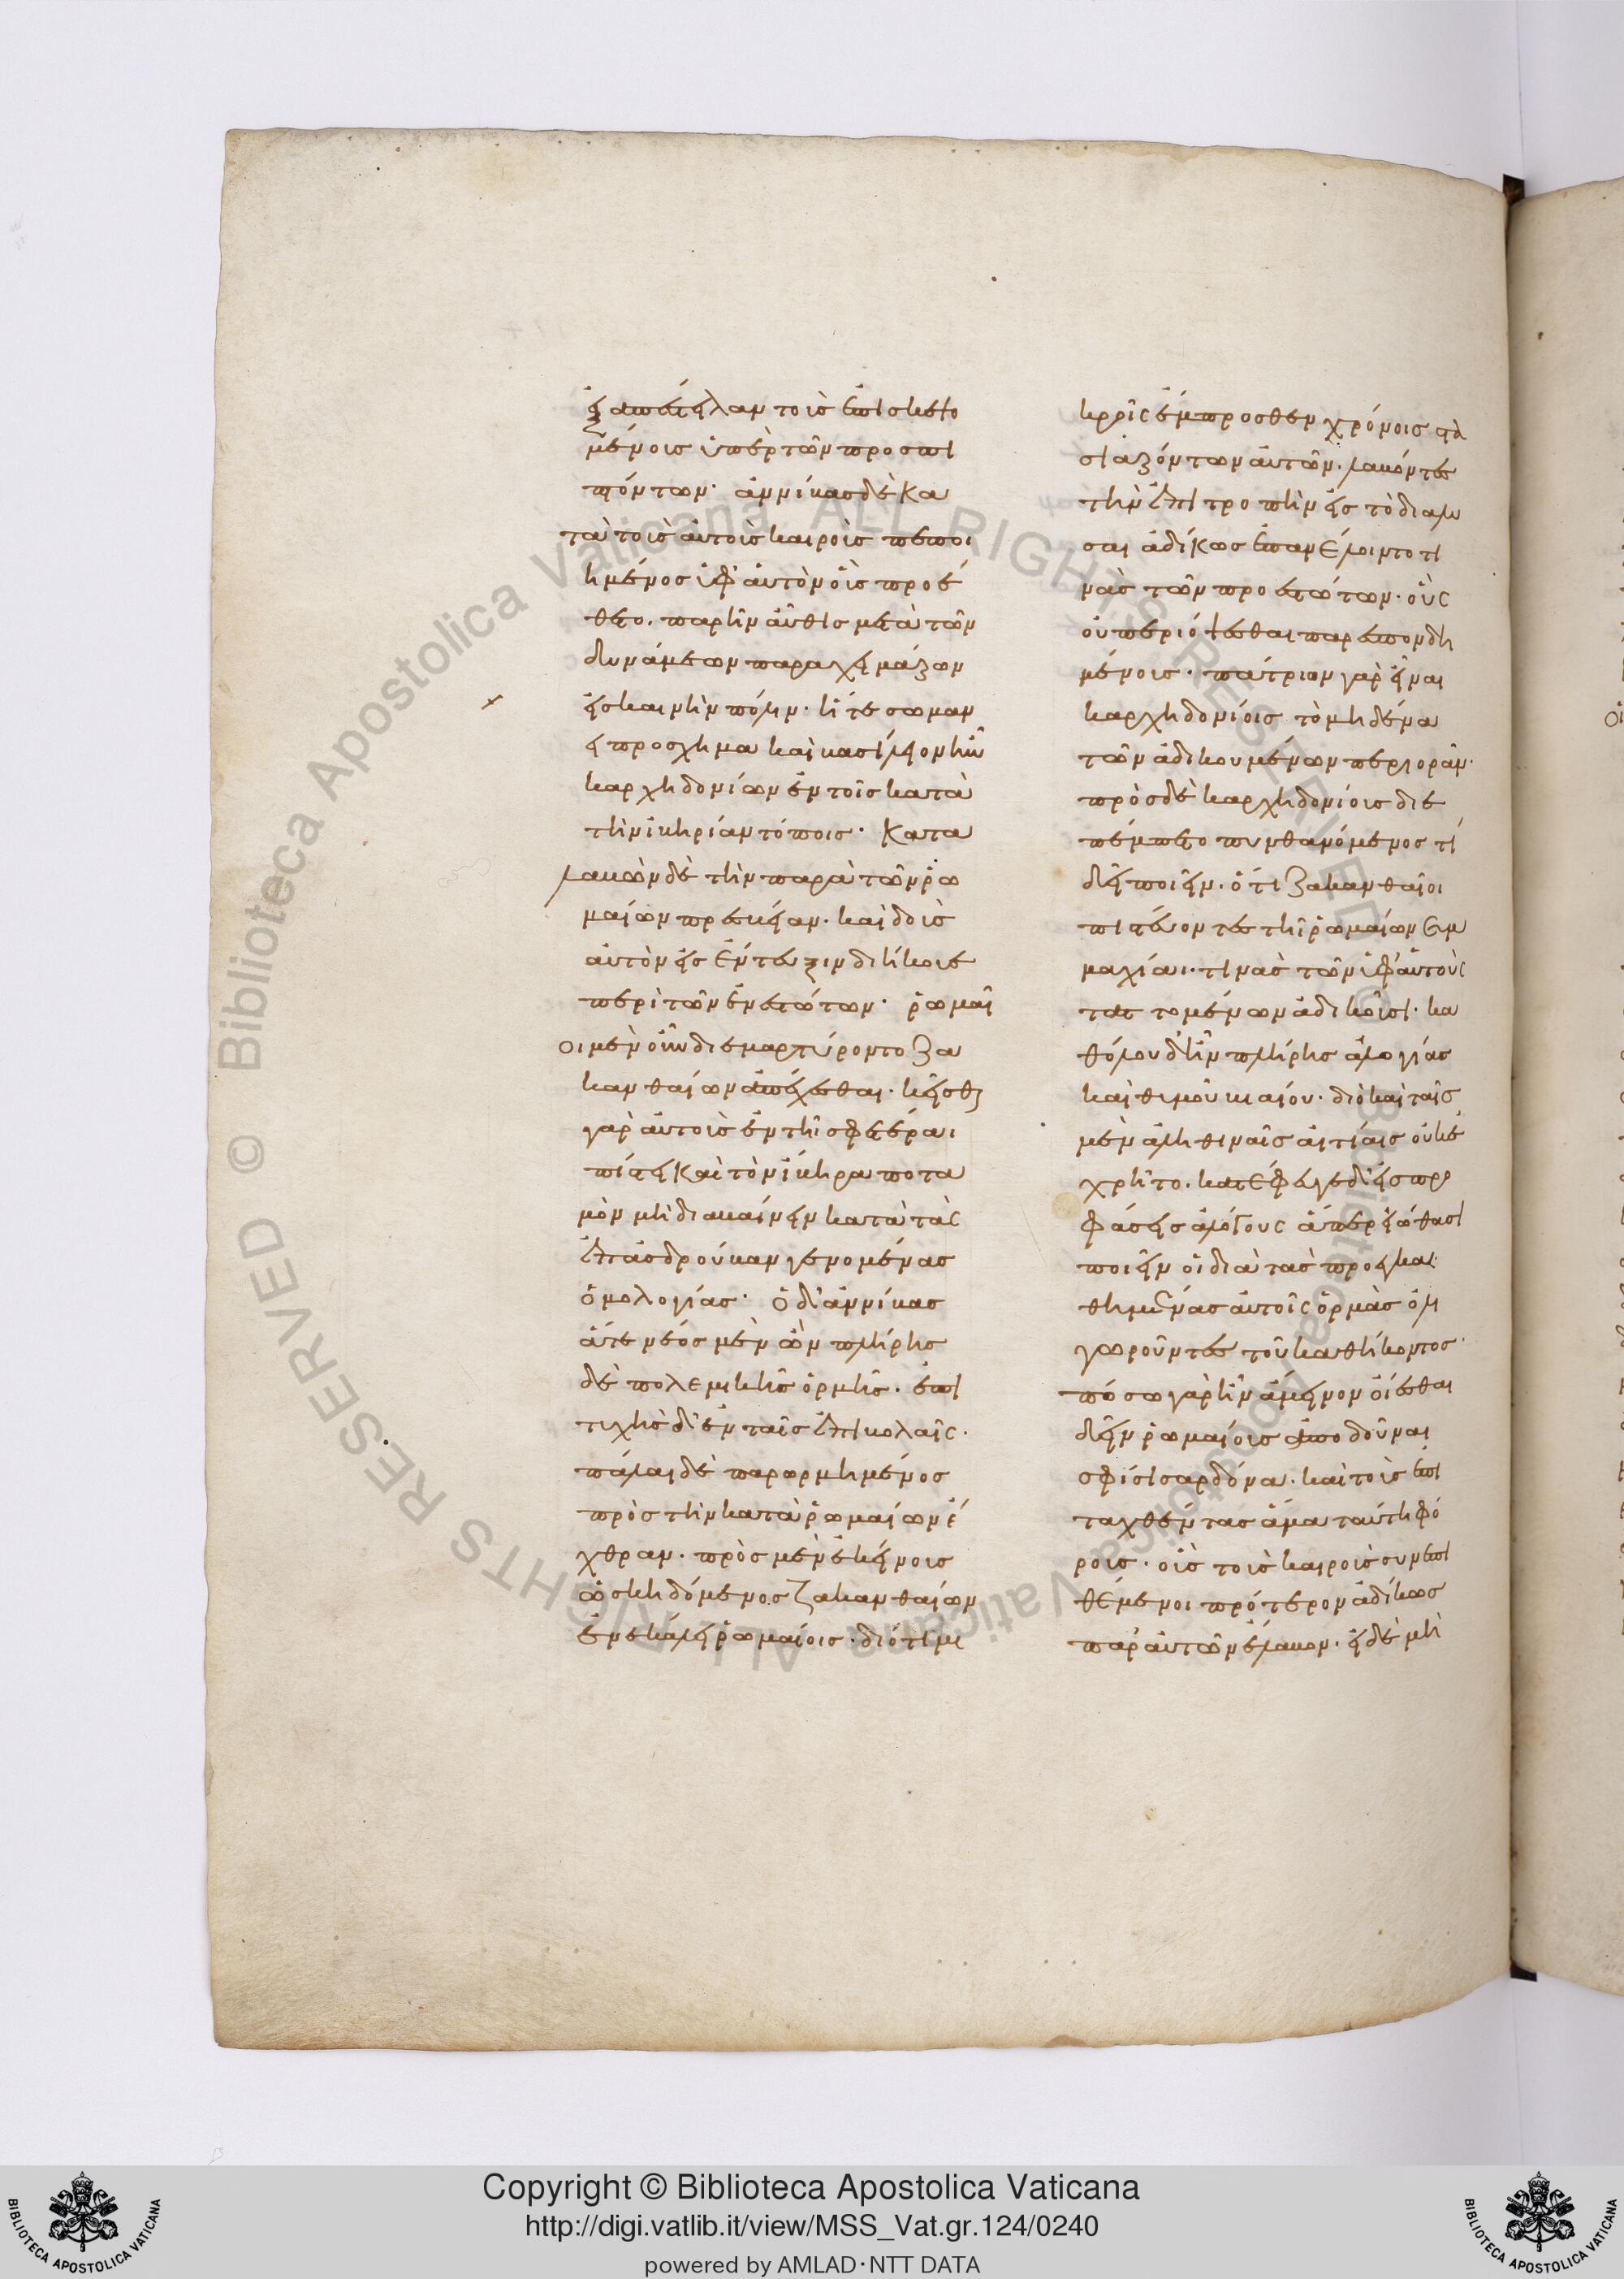 ἐξαπέστειλαν τοὺς ἐπισκεψο
μένους ὑπὲρ τῶν προσπι
πτόντων· ἀννίβας δὲ κα
τὰ τοὺς αὐτοὺς καιροὺς πεποι
ημένος ὑφ' αὑτὸν οὓς προέ
θετο. παρῆν αὖθις μετὰ τῶν
δυνάμεων παραχειμάσων
εἰς καινὴν πόλιν· ἥτις ὡσαν
εὶ πρόσχημα καὶ βασίλειον ἦν
καρχηδονίων ἐν τοῖς κατὰ
τὴν ἰβηρίαν τόποις· κατα
λαβὼν δὲ τὴν παρὰ τῶν ῥω
μαίων πρεσβείαν. καὶ δοὺς
αὑτὸν εἰς ἔντευξιν διήκουε
περὶ τῶν ἐνεστώτων· ῥωμαῖ
οι μὲν οὖν διεμαρτύροντο ζα
κανθαίων ἀπέχεσθαι. κεῖσθαι
γὰρ αὐτοὺς ἐν τῆ σφετέραι
πίστει καὶ τὸν ἴβηρα ποτα
μὸν μὴ διαβαίνειν κατὰ τὰς
ἐπ' ἀσδρούβαν γενομένας
ὁμολογίας· ὁ δ' ἀννίβας
ἅτε νέος μὲν ὢν πλήρης
δὲ πολεμικῆς ὁρμῆς. ἐπι
τυχὴς δ' ἐν ταῖς ἐπιβολαῖς.
πάλαι δὲ παρωρμημένος
πρὸς τὴν κατὰ ῥωμαίων ἔ
χθραν. πρὸς μὲν ἐκείνους
ὡς κηδόμενος ζακανθαίων
ἐνεκάλει ῥωμαίοις. διότι μι
κροῖς ἔμπροσθεν χρόνοις στα
σιαζόντων αὐτῶν. λαβόντες
τὴν ἐπιτροπὴν εἰς τὸ διαλῦ
σαι ἀδίκως ἐπανέλοιντό τι
νας τῶν προεστώτων· οὓς
οὐ περιόψεσθαι παρεσπονδη
μένους· πάτριον γὰρ εἶναι
καρχηδονίοις τὸ μηδένα
τῶν ἀδικουμένων περιορᾶν·
πρὸς δὲ καρχηδονίους διε
πέμπετο πυνθανόμενος τί
δεῖ ποιεῖν. ὅτι ζακανθαῖοι
πιστεύοντες τῆ ῥωμαίων συμ
μαχίαι. τινὰς τῶν ὑφ' αὑτοὺς
ταττομένων ἀδικοῦσι. κα
θόλου δ' ἦν πλήρης ἀλογίας
καὶ θυμοῦ βιαίου· διὸ καὶ ταῖς
μὲν ἀληθιναῖς αἰτίαις οὐκ ἐ
χρῆτο. κατέφευγε δ' εἰς προ
φάσεις ἀλόγους ἅπερ εἰώθασι
ποιεῖν οἱ διὰ τὰς προεγκα
θημένας αὐτοῖς ὁρμὰς ὀλι
γωροῦντες τοῦ καθήκοντος·
πόσω γὰρ ἦν ἄμεινον οἴεσθαι
δεῖν ῥωμαίους ἀποδοῦναι
σφίσι σαρδόνα. καὶ τοὺς ἐπι
ταχθέντας ἅμα ταύτη φό
ρους. οὓς τοῖς καιροῖς συνεπι
θέμενοι πρότερον ἀδίκως
παρ' αὐτῶν ἔλαβον. εἰ δὲ μὴ
Copyright © Biblioteca Apostolica Vaticana
http://digi.vatlib.it/view/MSS_Vat.gr.124/0240
powered by AMLAD·NTT DATA